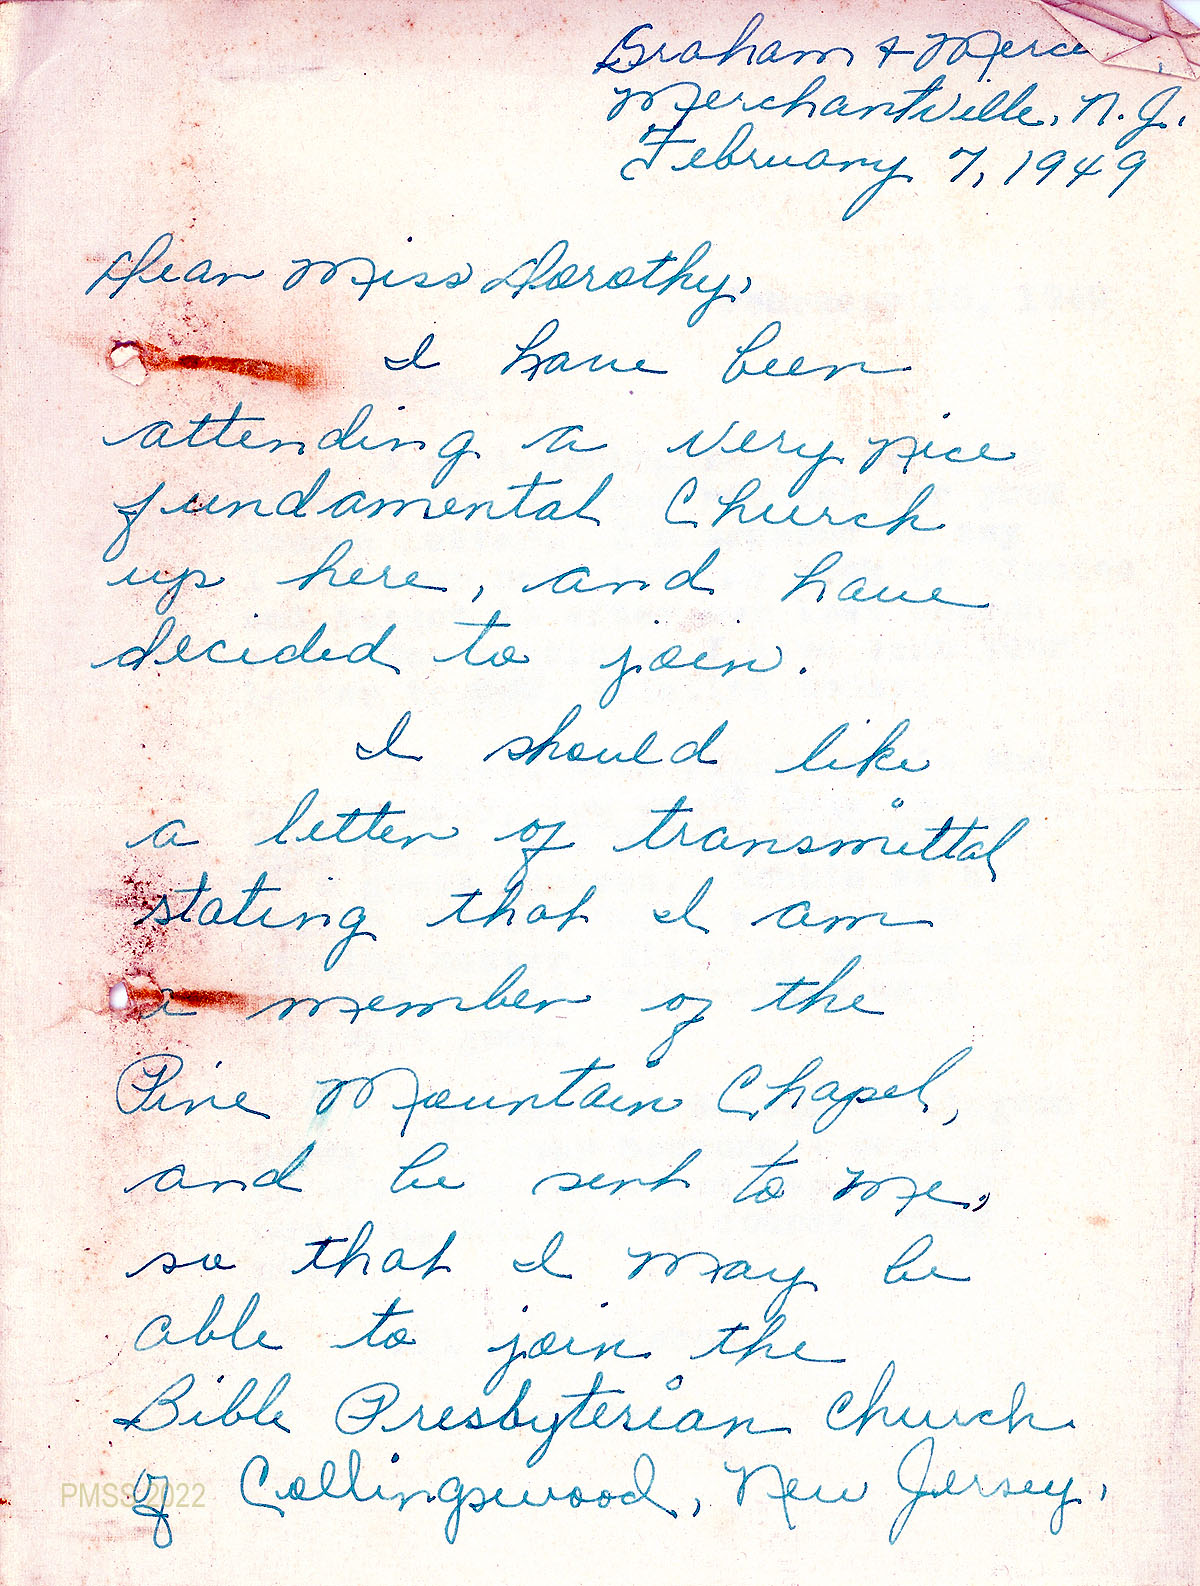 Graham & Merce
Merchantville, N.J.
February 7, 1949
Dear Miss Dorothy,
I have been
attending a very nice
fundamental Church
up here, and have
decided to join.
I should like
a letter of transmittal
stating that I am
a member of the
Pine Mountain Chapel,
and be sent to me,
so that I may be
able to join the
Bible Presbyterian Church
of Collingswood, New Jersey,
PMSS 2022